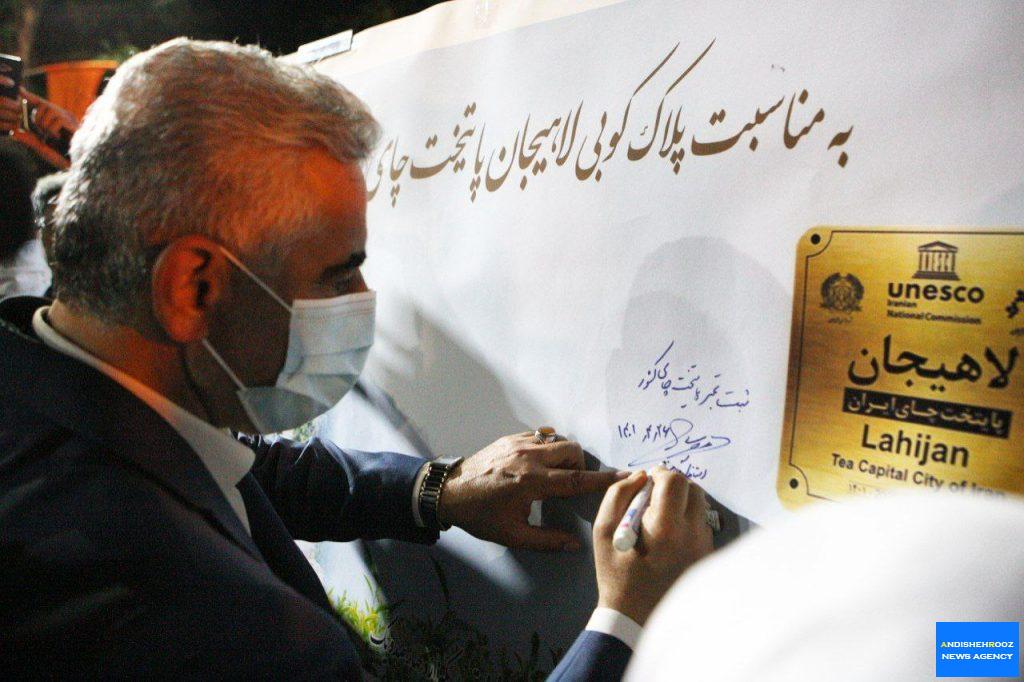 به مناسبت پلاک کوبی لاهیجان پایتخت چای
unesco
Iranian
National Commission
لاهیجان
پایتخت چای ایران
Lahijan
Tea Capital City of Iran
ثبت
پایتخت چای کشور
۱۴۰۱
ANDISHEHROOZ
NEWS AGENCY